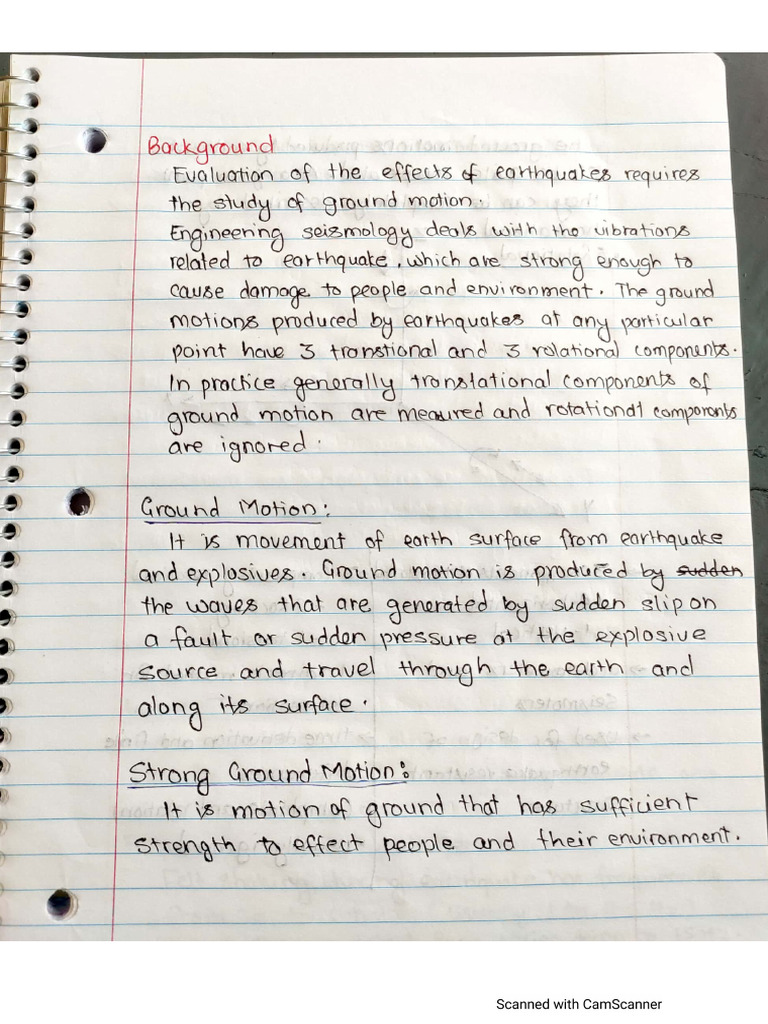 Background
Evaluation of the effects of earthquakes requires
the study of ground motion.
Engineering seismology deals with the vibrations
related to earthquake, which are strong enough to
cause damage to people and environment. The ground
motions produced by earthquakes at any particular
point have 3 transtional and 3 rotational components.
In practice generally translational components of
ground motion are meaured and rotational components
are ignored.
Ground Motion:
It is movement of earth surface from earthquake
and explosives. Ground motion is produced by sudden
the waves that are generated by sudden slip on
a fault or sudden pressure at the explosive
source and travel through the earth and
along its surface.
Strong Ground Motion:
It is motion of ground that has sufficient
strength to effect people and their environment.
Scanned with CamScanner